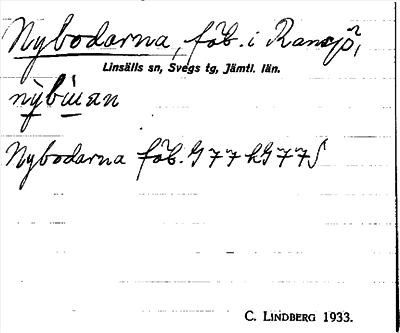 Nybodarna, fäb. i Ransjö,
Linsälls sn, Svegs tg, Jämtl. län.
nybuan
Nybodarna fäb. G 77 k G 77 S
C. LINDBERG 1933.